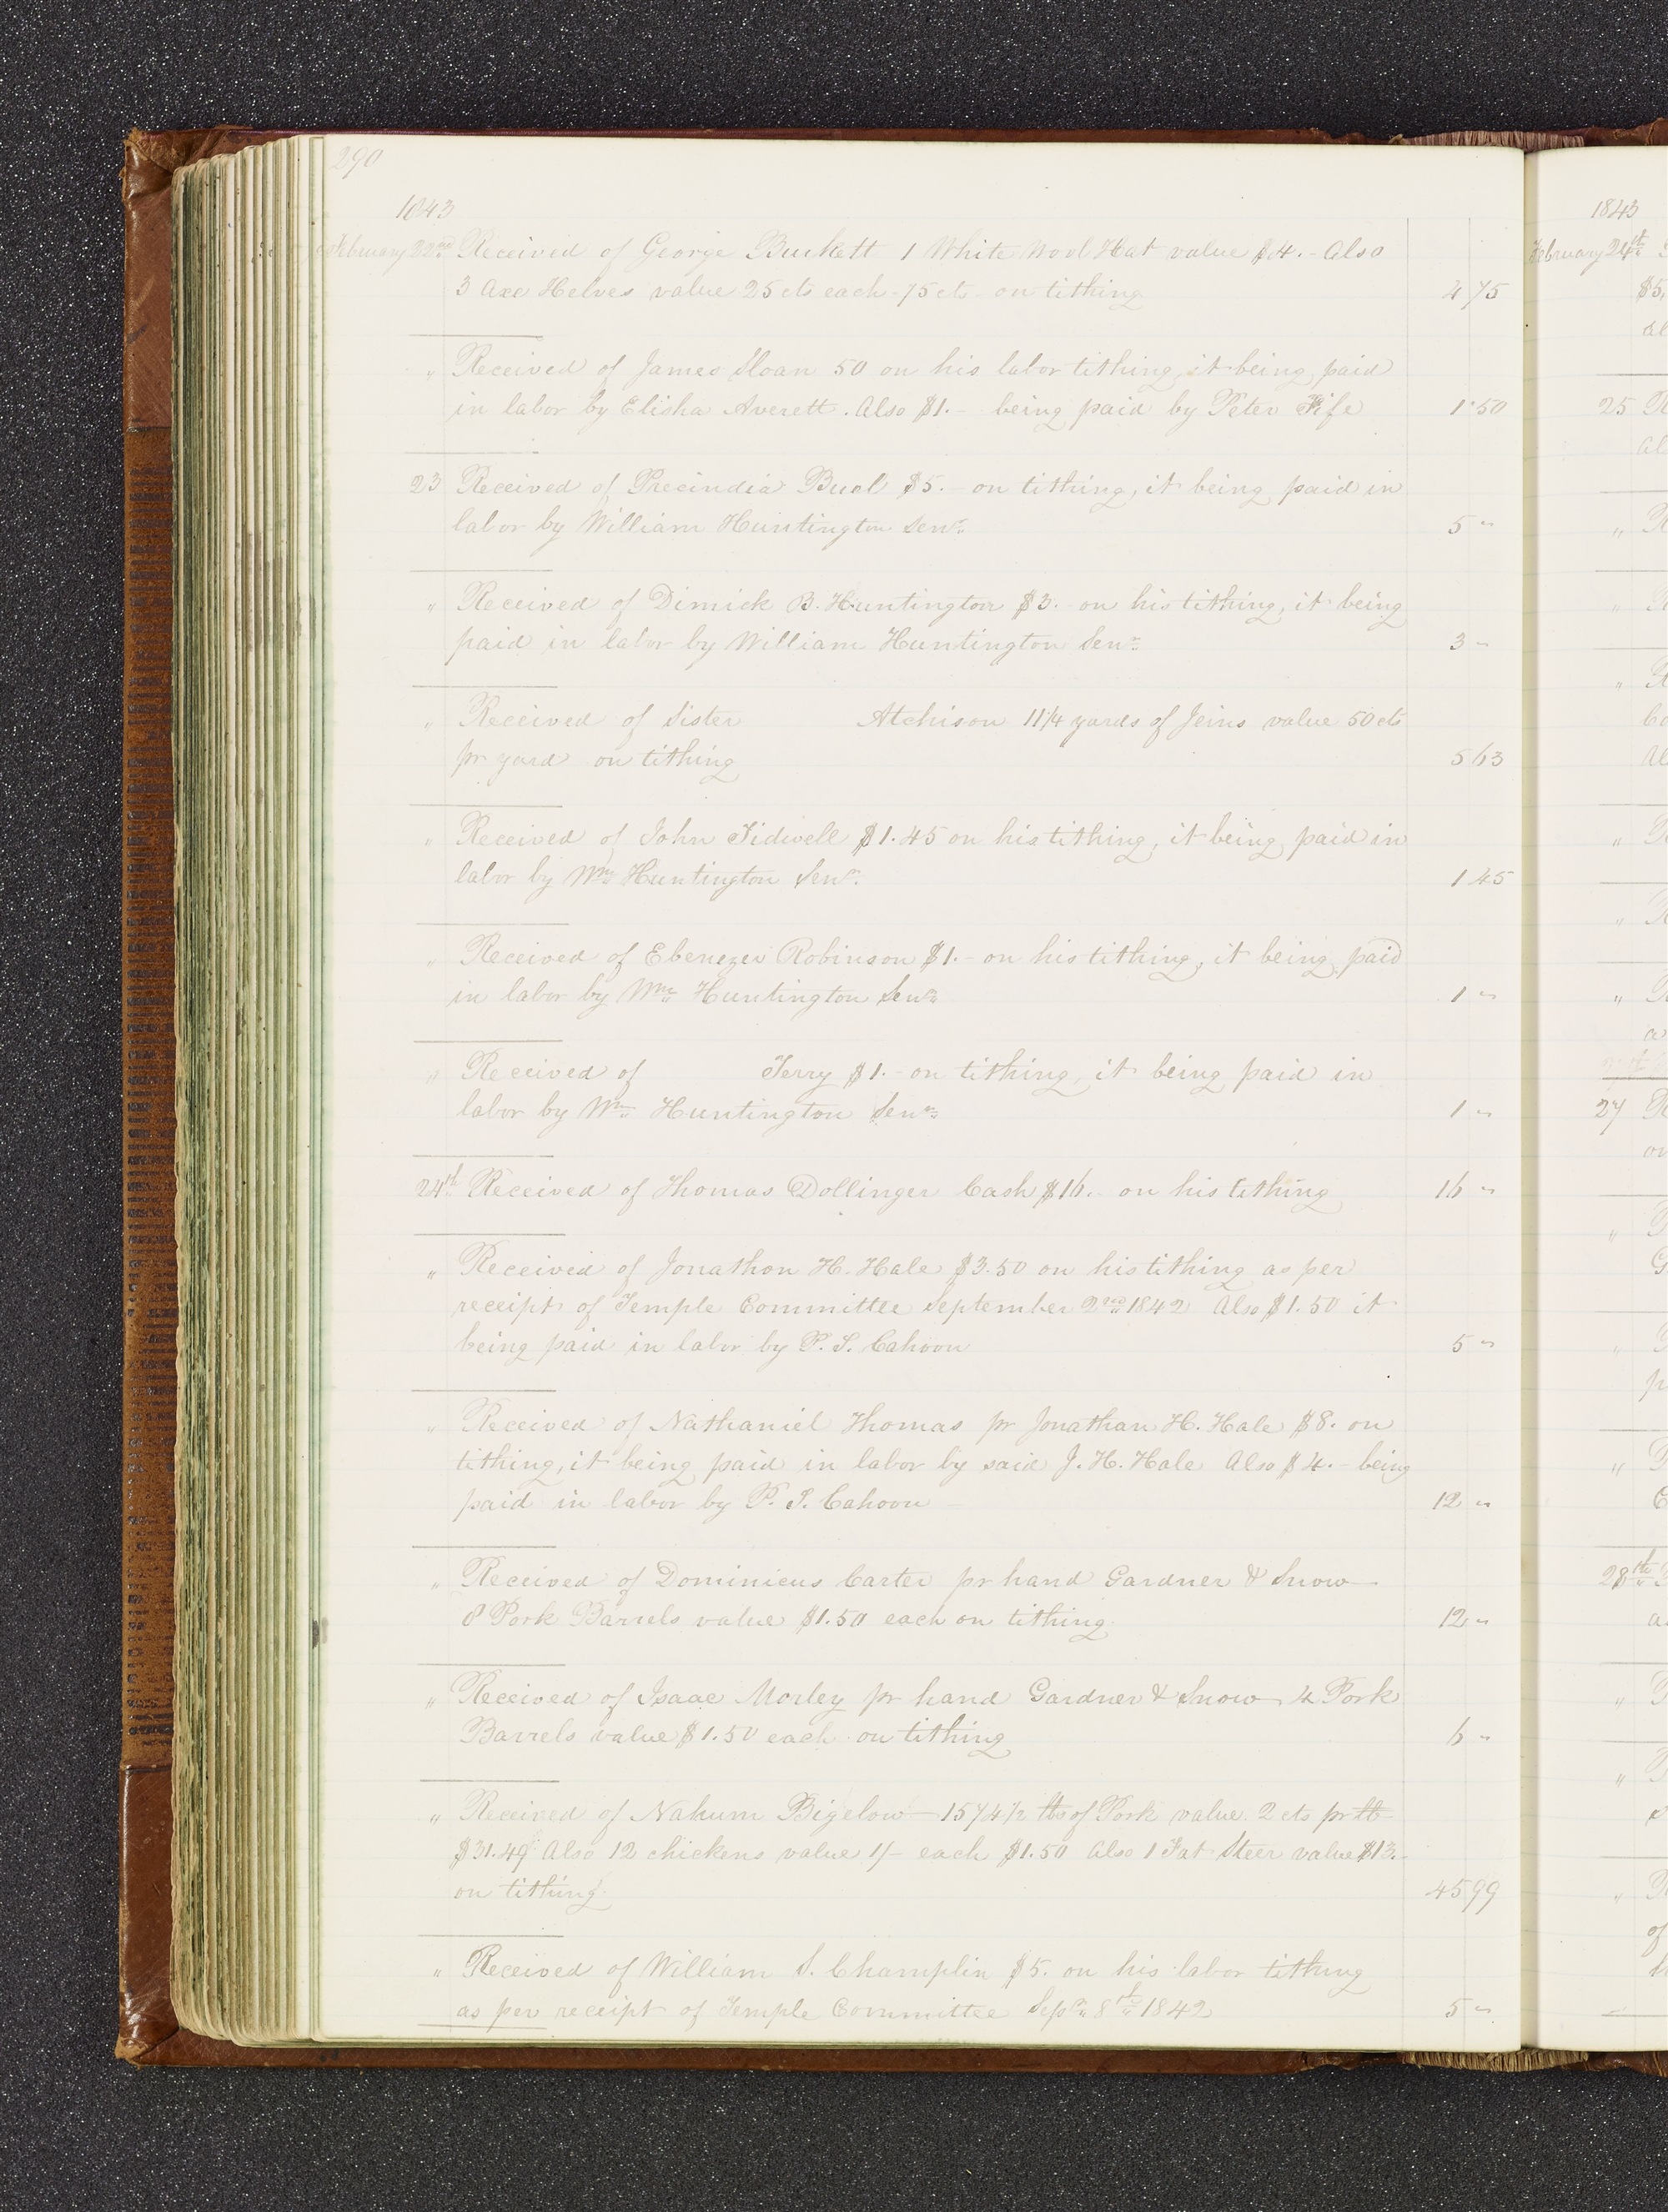 290
1843
February 22nd Received of George Burkett 1 White Wool Hat value $4.- Also
3 Axe Helves value 25 cts each - 75 cts - on tithing 4 75
" Received of James Sloan 50 on his labor tithing, it being paid
in labor by Elisha Averett. Also $1.- being paid by Peter Fife 1 50
23 Received of Precindia Buel $5.- on tithing, it being paid in
labor by William Huntington Senr. 5 "
" Received of Dimick B. Huntington $3.- on his tithing, it being
paid in labor by William Huntington Senr. 3 "
" Received of Sister Atchison 11 1/4 yards of Jeins value 50 cts
pr yard on tithing 5 63
" Received of John Tidwell $1.45 on his tithing, it being paid in
labor by Wm Huntington Senr. 1 45
" Received of Ebenezer Robinson $1.- on his tithing, it being paid
in labor by Wm Huntington Senr. 1 "
" Received of Terry $1.- on tithing, it being paid in
labor by Wm Huntington Senr. 1 "
24th Received of Thomas Dollinger Cash $16.- on his tithing 16 "
" Received of Jonathon H. Hale $3.50 on his tithing as per
receipt of Temple Committee September 2nd 1842 Also $1.50 it
being paid in labor by P. S. Cahoon 5 "
" Received of Nathaniel Thomas pr Jonathan H. Hale $8. on
tithing, it being paid in labor by said J. H. Hale Also $4.- being
paid in labor by P. S. Cahoon 12 "
" Received of Dominicus Carter pr hand Gardner & Snow
8 Pork Barrels value $1.50 each on tithing. 12 "
" Received of Isaac Morley pr hand Gardner & Snow 4 Pork
Barrels value $1.50 each on tithing 6 "
" Received of Nahum Bigelow 1574 1/2 lbs of Pork value 2 cts pr lb
$31.49 Also 12 chickens value 1/- each $1.50 Also 1 Fat Steer value $13.-
on tithing. 45 99
" Received of William S. Champlin $5. on his labor tithing
as per receipt of Temple Committee Sepr. 8th 1842 5 "
1843
February 24th
$5.
25
27
28th